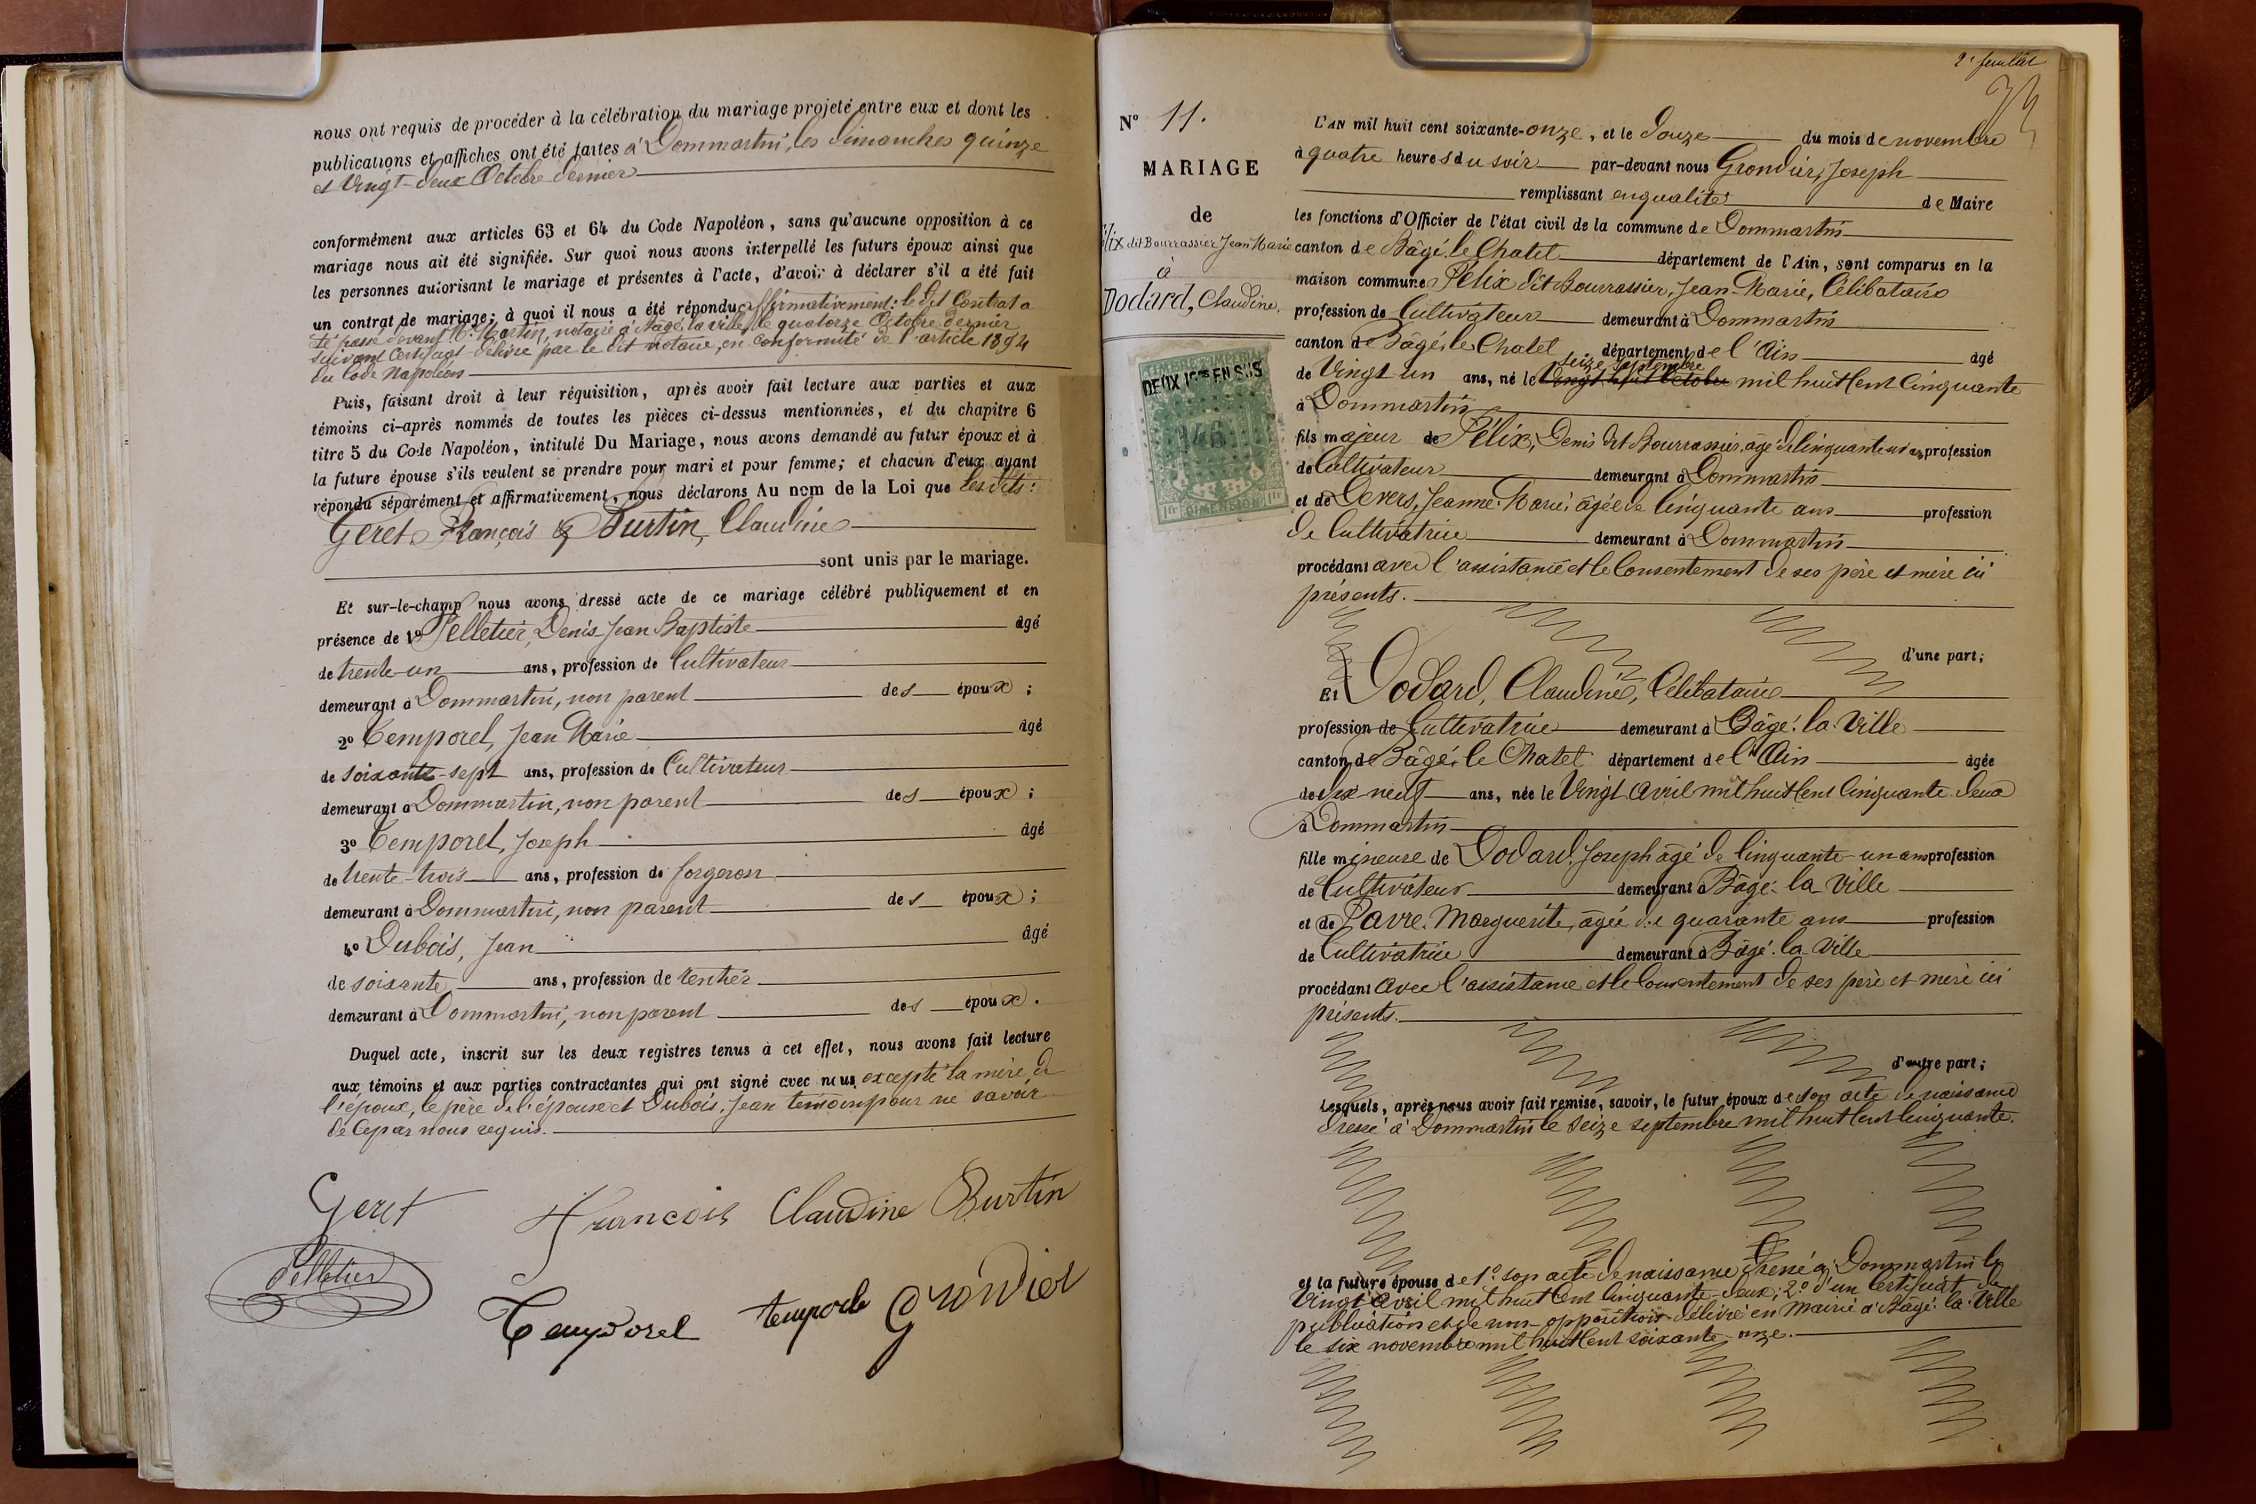 nous ont requis de procéder à la célébration du mariage projeté entre eux et dont les
publications et affiches ont été faites à Dommartin, les dimanches quinze
et Vingt-deux Octobre dernier
conformément aux articles 63 et 64 du Code Napoléon, sans qu'aucune opposition à ce
mariage nous ait été signifiée. Sur quoi nous avons interpellé les futurs époux ainsi que
les personnes autorisant le mariage et présentes à l'acte, d'avoir à déclarer s'il a été fait
un contrat de mariage; à quoi il nous a été répondu affirmativement: le dit Contrat a
été passé devant Me Martin, notaire à Bâgé la ville, le quatorze Octobre dernier
suivant Certificat délivré par le dit notaire, en conformité de l'article 1394
du Code Napoléon
Puis, faisant droit à leur réquisition, après avoir fait lecture aux parties et aux
témoins ci-après nommés de toutes les pièces ci-dessus mentionnées, et du chapitre 6
titre 5 du Code Napoléon, intitulé Du Mariage, nous avons demandé au futur époux et à
la future épouse s'ils veulent se prendre pour mari et pour femme; et chacun d'eux ayant
répondu séparément et affirmativement, nous déclarons Au nom de la Loi que les dits:
Geret François & Burtin, Claudine
sont unis par le mariage.
Et sur-le-champ nous avons dressé acte de ce mariage célébré publiquement et en
présence de 1º Pelletier, Denis Jean Baptiste âgé
de trente-un ans, profession de Cultivateur
demeurant à Dommartin, non parent des époux;
2º Temporel, Jean Marie âgé
de soixante-sept ans, profession de Cultivateur
demeurant à Dommartin, non parent des époux;
3º Temporel, Joseph âgé
de trente-trois ans, profession de forgeron
demeurant à Dommartin, non parent des époux;
4º Dubois, Jean âgé
de soixante ans, profession de rentier
demeurant à Dommartin, non parent des époux.
Duquel acte, inscrit sur les deux registres tenus à cet effet, nous avons fait lecture
aux témoins et aux parties contractantes qui ont signé avec nous excepté la mère de
l'époux, le père de l'épouse et Dubois, Jean témoin pour ne savoir
de ce par nous requis.
Geret François Claudine Burtin
Pelletier
Temporel temporel Grondier
2e feuillet
Nº 11.
MARIAGE
de
élix dit Bourrassier Jean Marie
à
Dodard, Claudine,
DEUX 10mes EN SUS
146
DIMENSION
L'AN mil huit cent soixante-onze, et le douze du mois de novembre
à quatre heures du soir par-devant nous Grondier, Joseph
remplissant en qualité de Maire
les fonctions d'Officier de l'état civil de la commune de Dommartin
canton de Bâgé-le-Chatel département de l'Ain, sont comparus en la
maison commune Félix dit Bourrassier, Jean-Marie, Célibataire
profession de Cultivateur demeurant à Dommartin
canton de Bâgé-le-Chatel département de l'Ain âgé
seize septembre
de Vingt-un ans, né le Vingt huit Octobre mil huit Cent Cinquante
à Dommartin
fils majeur de Félix, Denis dit Bourrassier, âgé de Cinquante un ans profession
de Cultivateur demeurant à Dommartin
et de Devers, Jeanne-Marie, âgée de Cinquante ans profession
de Cultivatrice demeurant à Dommartin
procédant avec l'assistance et le Consentement de ses père et mère ici
présents.
d'une part;
Et Dodard, Claudine, Célibataire
profession de Cultivatrice demeurant à Bâgé-la-Ville
canton de Bâgé-le-Chatel département de l'Ain âgée
de dix neuf ans, née le Vingt Avril mil huit Cent Cinquante-deux
à Dommartin
fille mineure de Dodard, Joseph âgé de Cinquante-un ans profession
de Cultivateur demeurant à Bâgé-la Ville
et de Pavre, Marguerite, âgée de quarante ans profession
de Cultivatrice demeurant à Bâgé-la-Ville
procédant avec l'assistance et le Consentement de ses père et mère ici
présents.
d'autre part;
Lesquels, après nous avoir fait remise, savoir, le futur époux de son acte de naissance
dressé à Dommartin le seize septembre mil huit Cent Cinquante.
et la future épouse de 1º son acte de naissance dressé à Dommartin le
Vingt Avril mil huit Cent Cinquante-deux; 2º d'un Certificat de
publication et de non-opposition délivré en Mairie à Bâgé-la-Ville
le six novembre mil huit Cent soixante-onze.